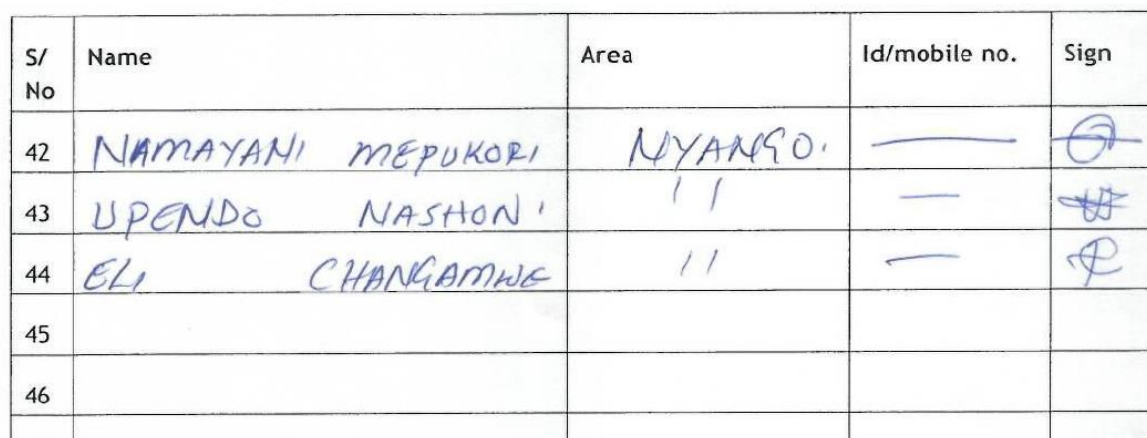 S/No Name Area Id/mobile no. Sign
42 NAMAYANI MEPUKORI NYANGO. —
43 UPENDO NASHONI '' —
44 ELI CHANGAMWE '' —
45
46